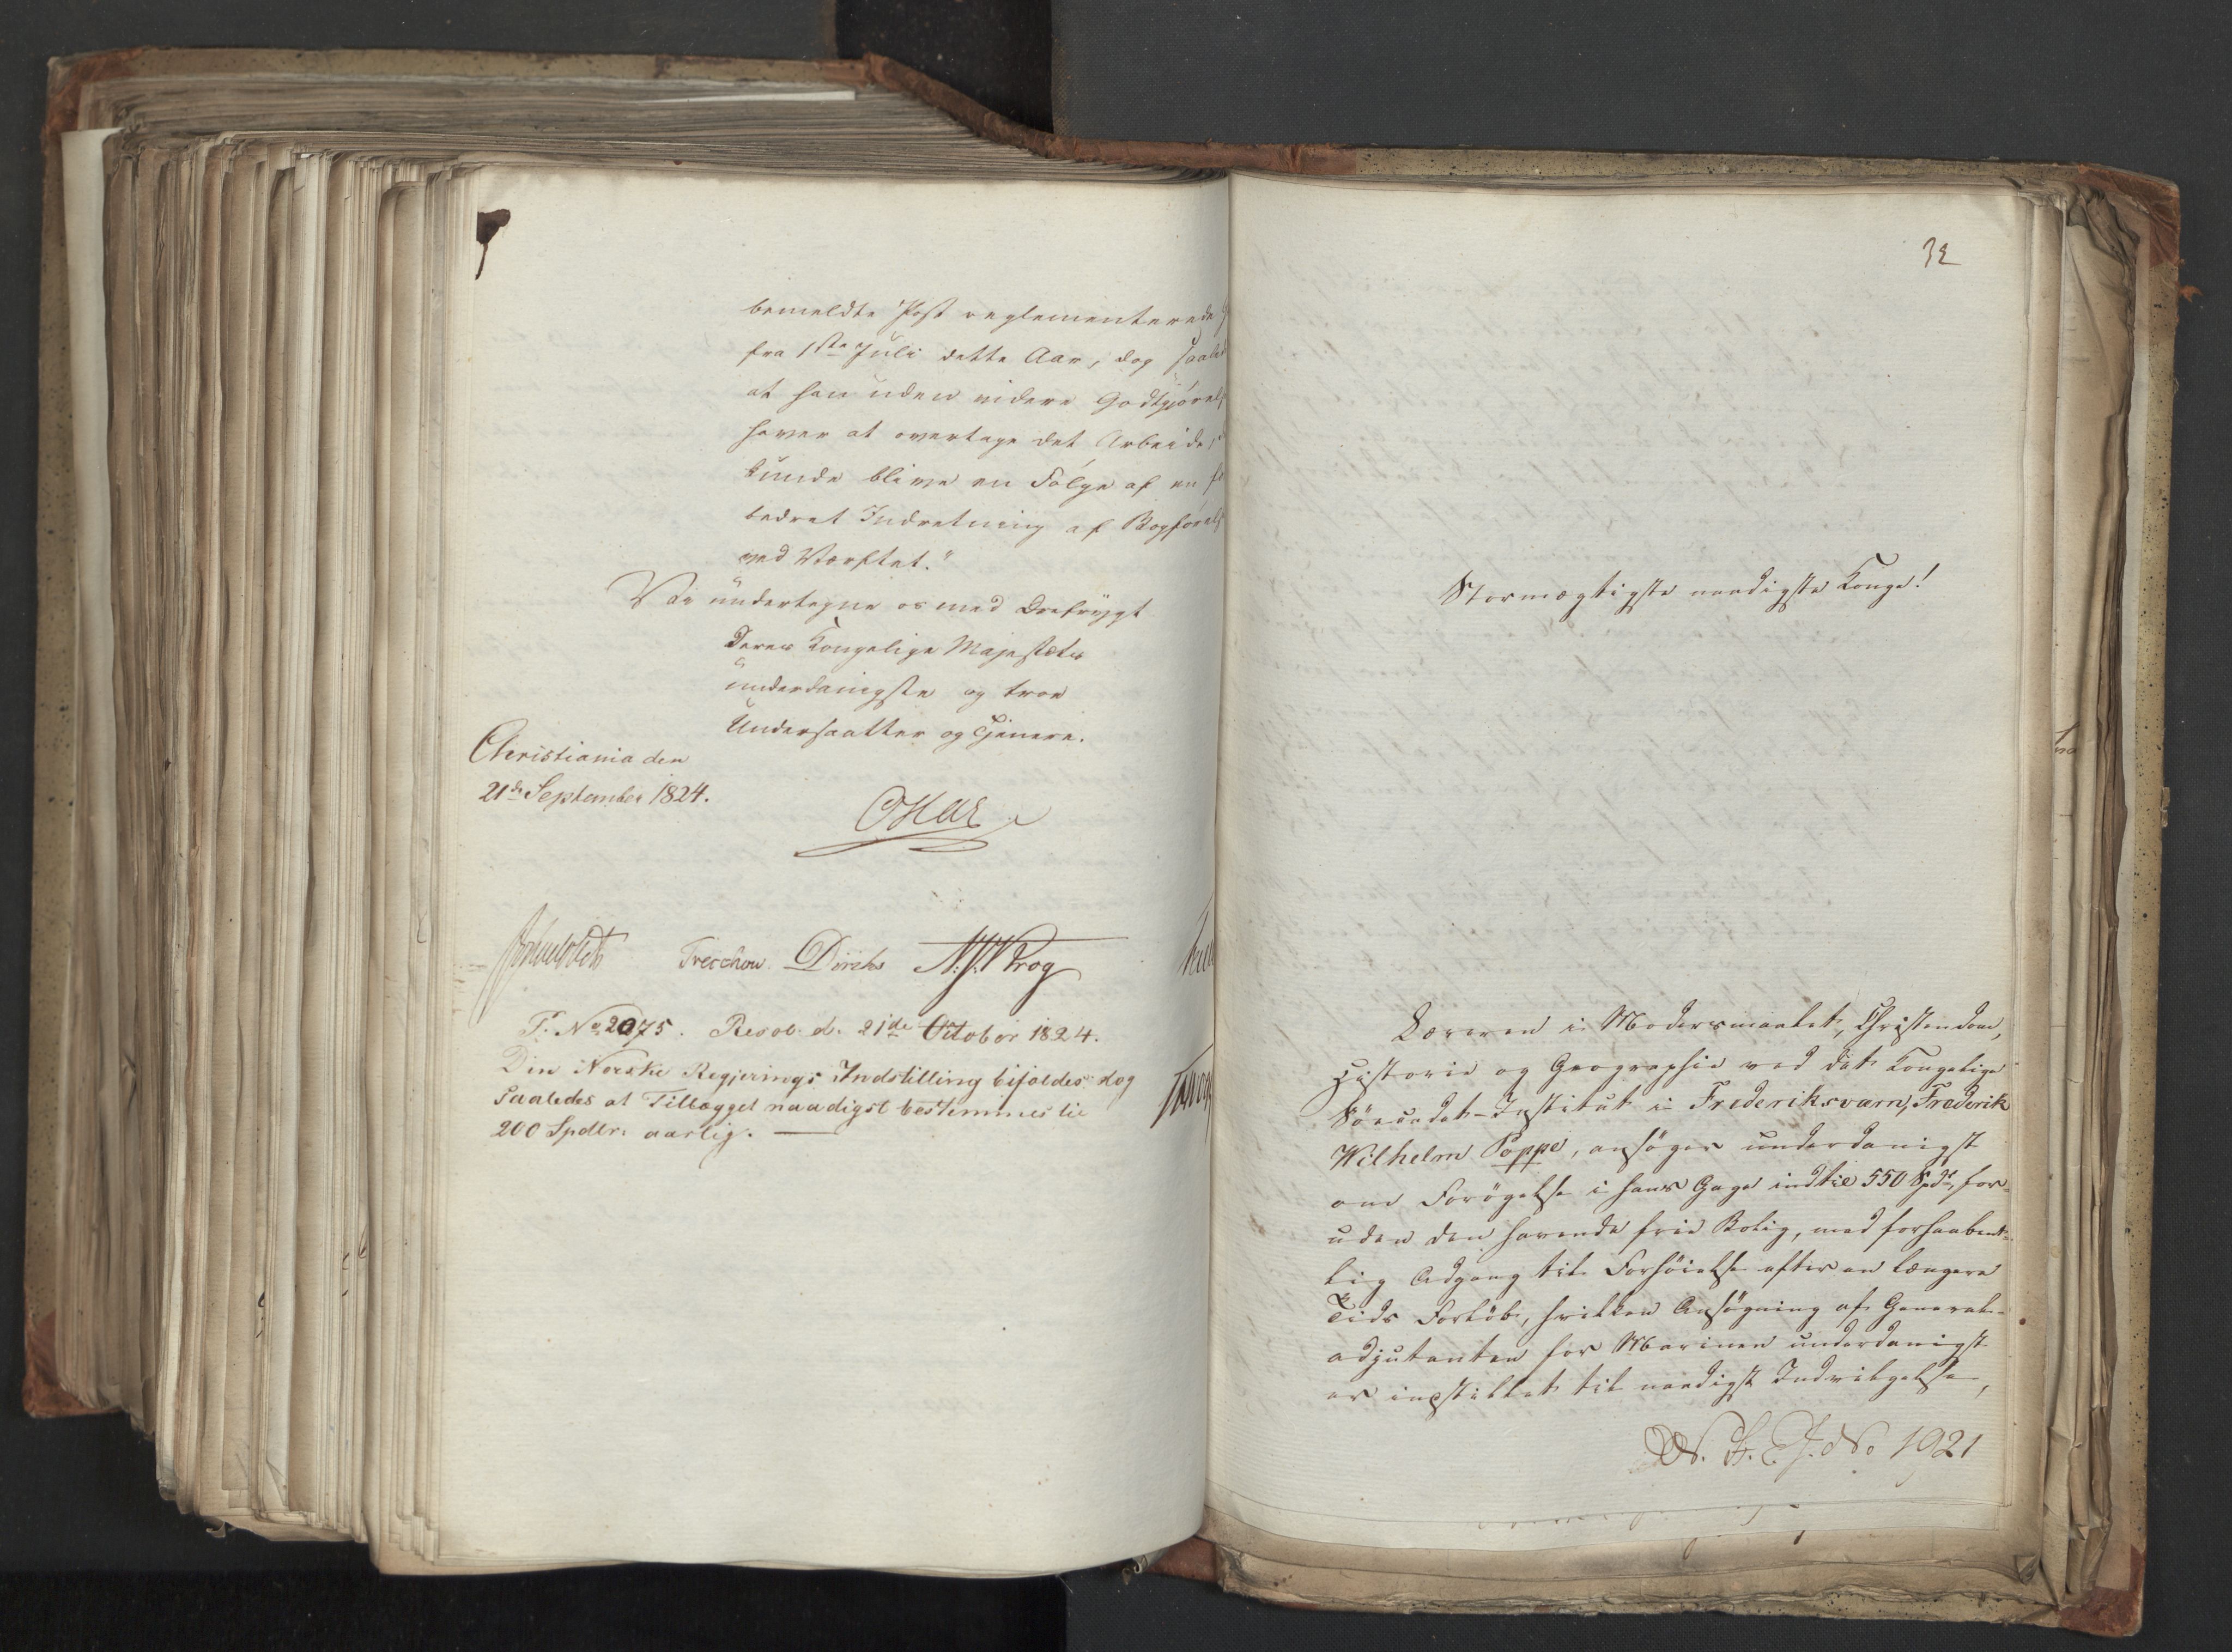 bemeldte Post reglementerede
fra 1ste Juli dette Aar, dog saaled
at han uden videre Godtgjörels
haver at overtage det Arbeide,
kunde blive en Fölge af en
bedret Indretning af Bogförels
ved Værftet."
Vi undertegne os med Ærefrygt
Deres Kongelige Majestæts
underdanigste og troe
Undersaatter og Tjenere.
Christiania den
21de September 1824.
Oscar
Treschow Diriks N. J. Krog
P. No 2075. Resol. d. 21de October 1824.
Den Norske Regjerings Indstilling bifaldes dog
Saaledes at Tillægget naadigst bestemmes til
200 Spdlr. aarlig.
32
Stormægtigste naadigste Konge!
Læreren i Modersmaalet, Christendom,
Historie og Geographie ved det Kongelige
Söecadet-Institut i Frederiksværn, Frederik
Wilhelm Poppe, ansöger underdanigst
om Forögelse i hans Gage indtil 550 Spd., for-
uden den havende frie Bolig, med forhaabent-
lig Adgang til Forhöielse efter en længere
Tids Forlöb, hvilken Ansögning af General-
adjutanten for Marinen underdanigst
er instillet til naadigst Indvilgelse,
No 1921